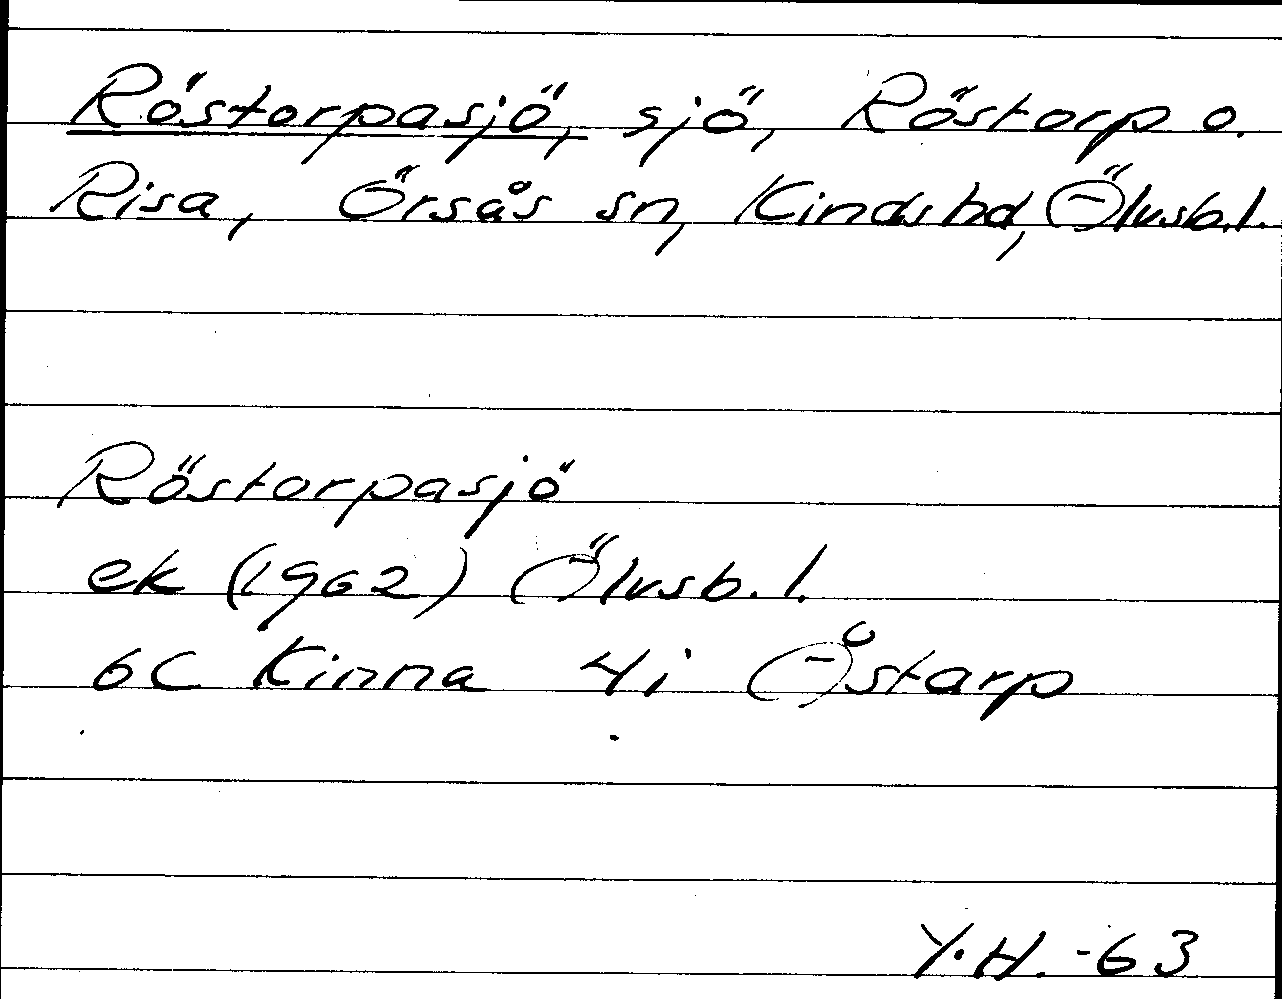 Röstorpasjö, sjö, Röstorp o.
Risa, Örsås sn, Kinds hd, Älvsb.l.
Röstorpasjö
ek (1962) Älvsb.l.
6C Kinna 4i Åstarp
Y.H. -63